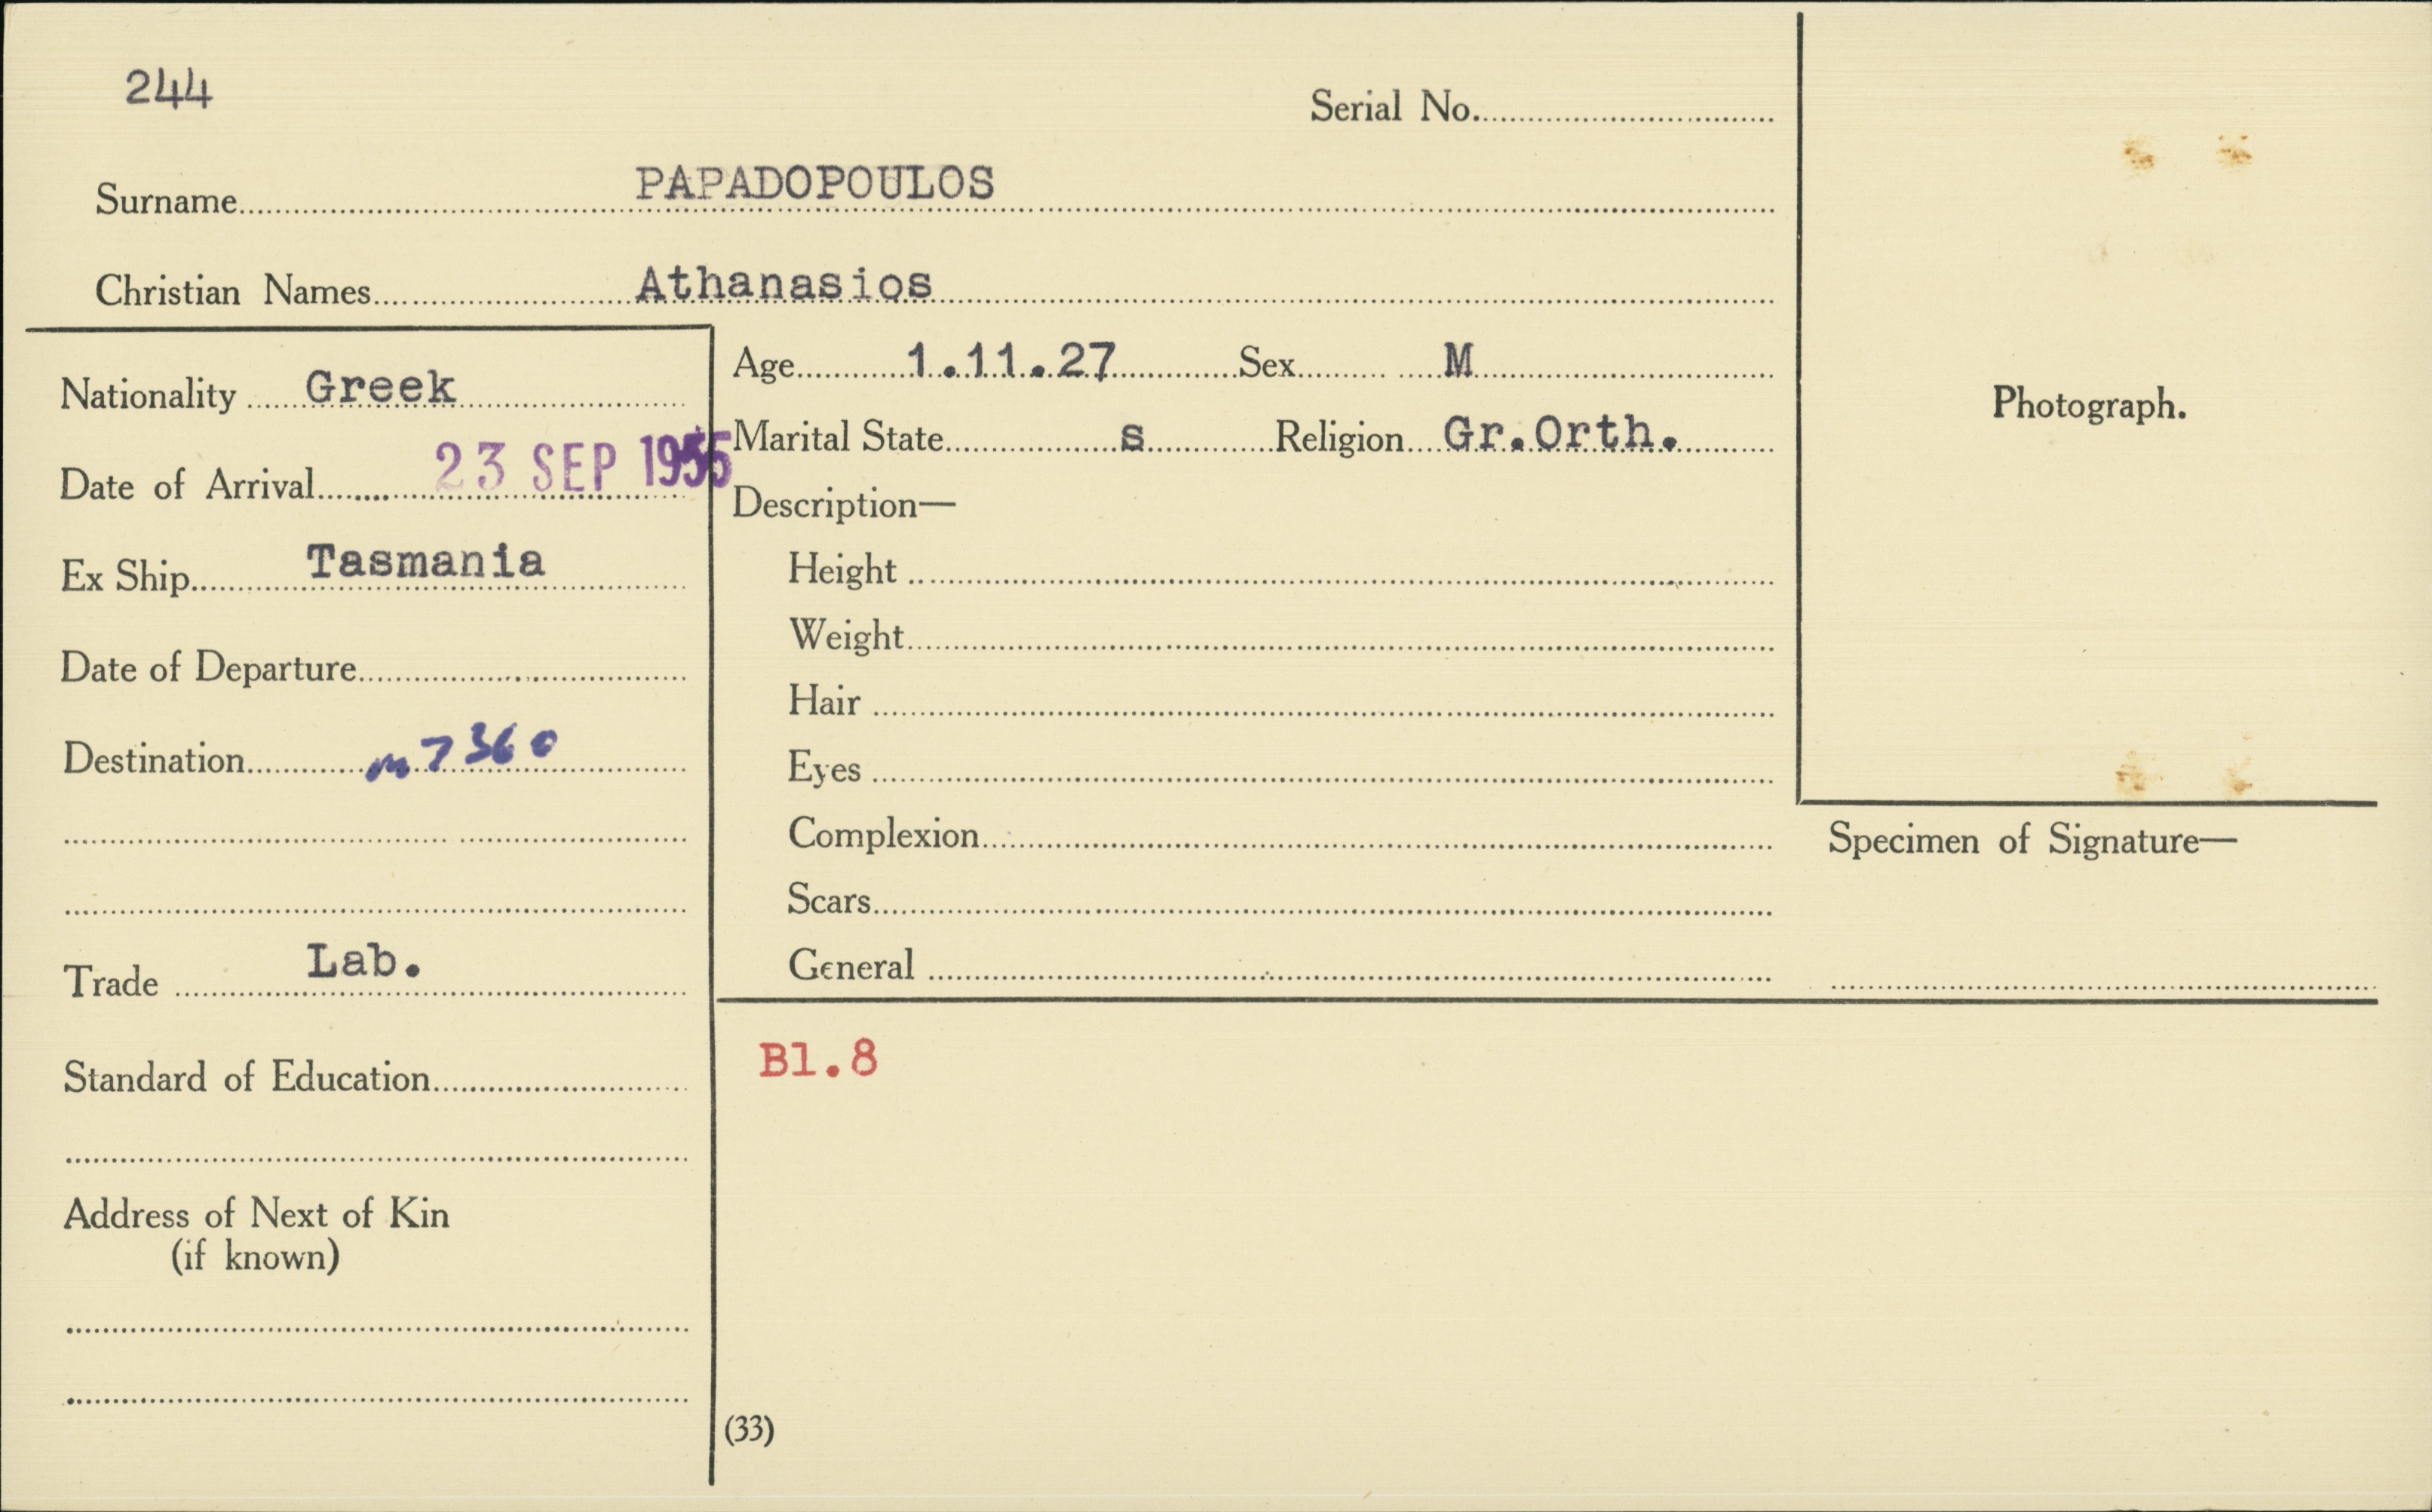 244
Serial No.
Surname PAPADOPOULOS
Christian Names Athanasios
Nationality Greek
Date of Arrival 23 SEP 1955
Ex Ship Tasmania
Date of Departure
Destination m7360
Trade Lab.
Standard of Education
Address of Next of Kin
(if known)
Age 1.11.27 Sex M
Marital State s Religion Gr.Orth.
Description—
Height
Weight
Hair
Eyes
Complexion
Scars
General
Photograph.
Specimen of Signature—
Bl.8
(33)